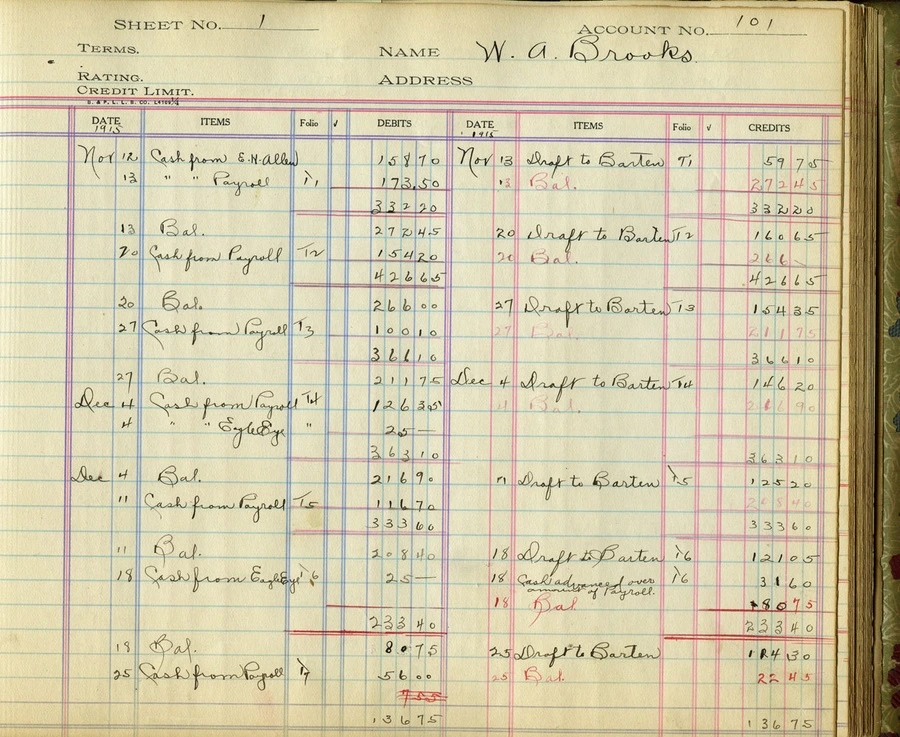 SHEET NO. 1 ACCOUNT NO. 101
TERMS. NAME W. A. Brooks
RATING. ADDRESS
CREDIT LIMIT.
DATE ITEMS Folio √ DEBITS DATE ITEMS Folio √ CREDITS
1915 1915
Nov 12 Cash from E. N. Allen 158 70 Nov 13 Draft to Barten T1 59 75
13 " " Payroll T1 173.50 13 Bal. 272 45
332 20 332 20
13 Bal. 272 45 20 Draft to Barten T2 160 65
20 Cash from Payroll T2 154 20 20 Bal. 266 –
426 65 426 65
20 Bal. 266 00 27 Draft to Barten T3 154 35
27 Cash from Payroll T3 100 10 27 Bal. 211 75
366 10 366 10
27 Bal. 211 75 Dec 4 Draft to Barten T4 146 20
Dec 4 Cash from Payroll T4 126 35 4 Bal. 216 90
4 " " Eagle Eye " 25 —
363 10 363 10
Dec 4 Bal. 216 90 11 Draft to Barten T5 125 20
11 Cash from Payroll T5 116 70 208 40
333 60 333 60
11 Bal. 208 40 18 Draft to Barten T6 121 05
18 Cash from Eagle Eye T6 25 — 18 Cash advanced over T6 31 60
amount of Payroll.
18 Bal 80 75
233 40 233 40
18 Bal. 80 75 25 Draft to Barten 114 30
25 Cash from Payroll T7 56 00 25 Bal. 22 45
136 75 136 75